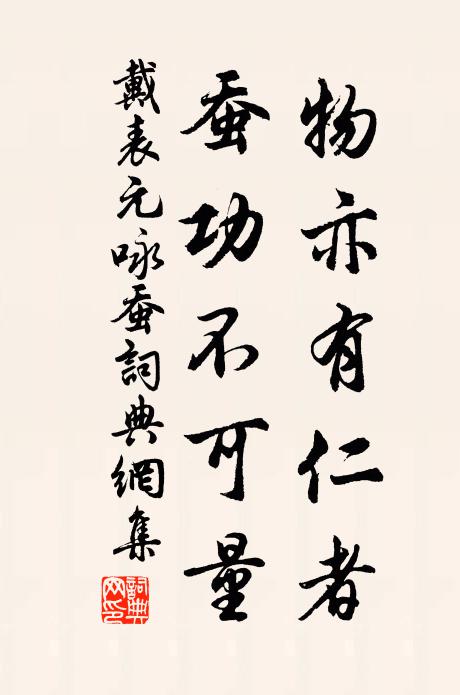 物亦有仁者
蚕功不可量
戴表元咏蚕詞典網集
詞典网印